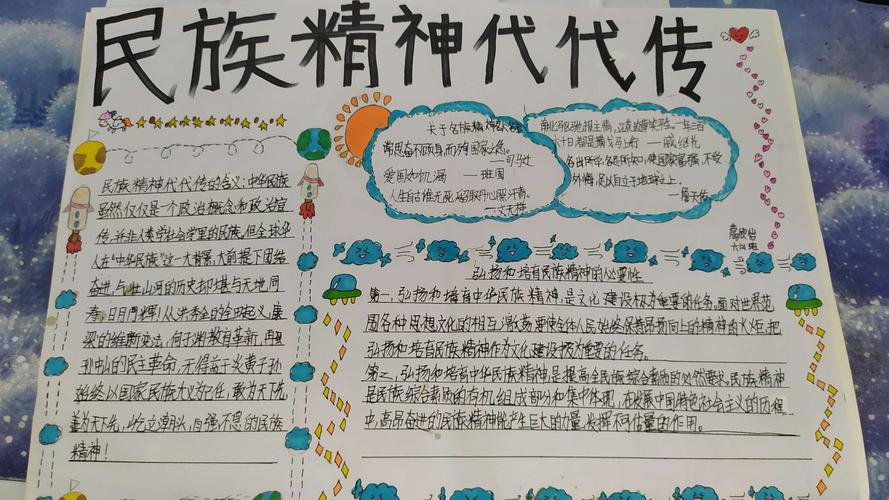 民族精神代代传
民族精神代代传的含义:中华民族
虽然仅仅是一个政治概念和政治宣
传,并非人类学社会学里的民族。但全球华
人在"中华民族"这一大背景,大前提下团结
奋进,与壮山河的历史却堪与天地同
寿,日月同辉!从洪秀全的金田起义,康
梁的维新变法,何于湘教育革新,再到
孙中山的民主革命,无得益于炎黄子孙
始终以国家民族大义为己任,敢为天下先,
善为天下先,屹立潮头,自强不息的民族
精神!
关于名族精神
常思奋不顾身,而殉国家之急。
——司马迁
爱国如饥渴 ——班固
人生自古谁无死,留取丹心照汗青。
——文天祥
南北驱驰报主情,江花边月笑平生。一年三百
六十日,都是横戈马上行 ——戚继光
各出所学,各尽所知,使国家富强,不受
外侮,足以自立于地球之上。
——詹天佑
弘扬和培育民族精神的必要性
第一,弘扬和培育中华民族精神,是文化建设极为重要的任务。面对世界范
围各种思想文化的相互激荡,要使全体人民始终保持昂扬向上的精神的火炬,把
弘扬和培育民族精神作为文化建设极为重要的任务。
第二,弘扬和培育中华民族精神,是提高全民族综合素质的必然要求。民族精神
是民族综合素质的有机组成部分和集中体现,在发展中国特色社会主义的历程
中,高昂奋进的民族精神能产生巨大的力量,发挥不可估量的作用。